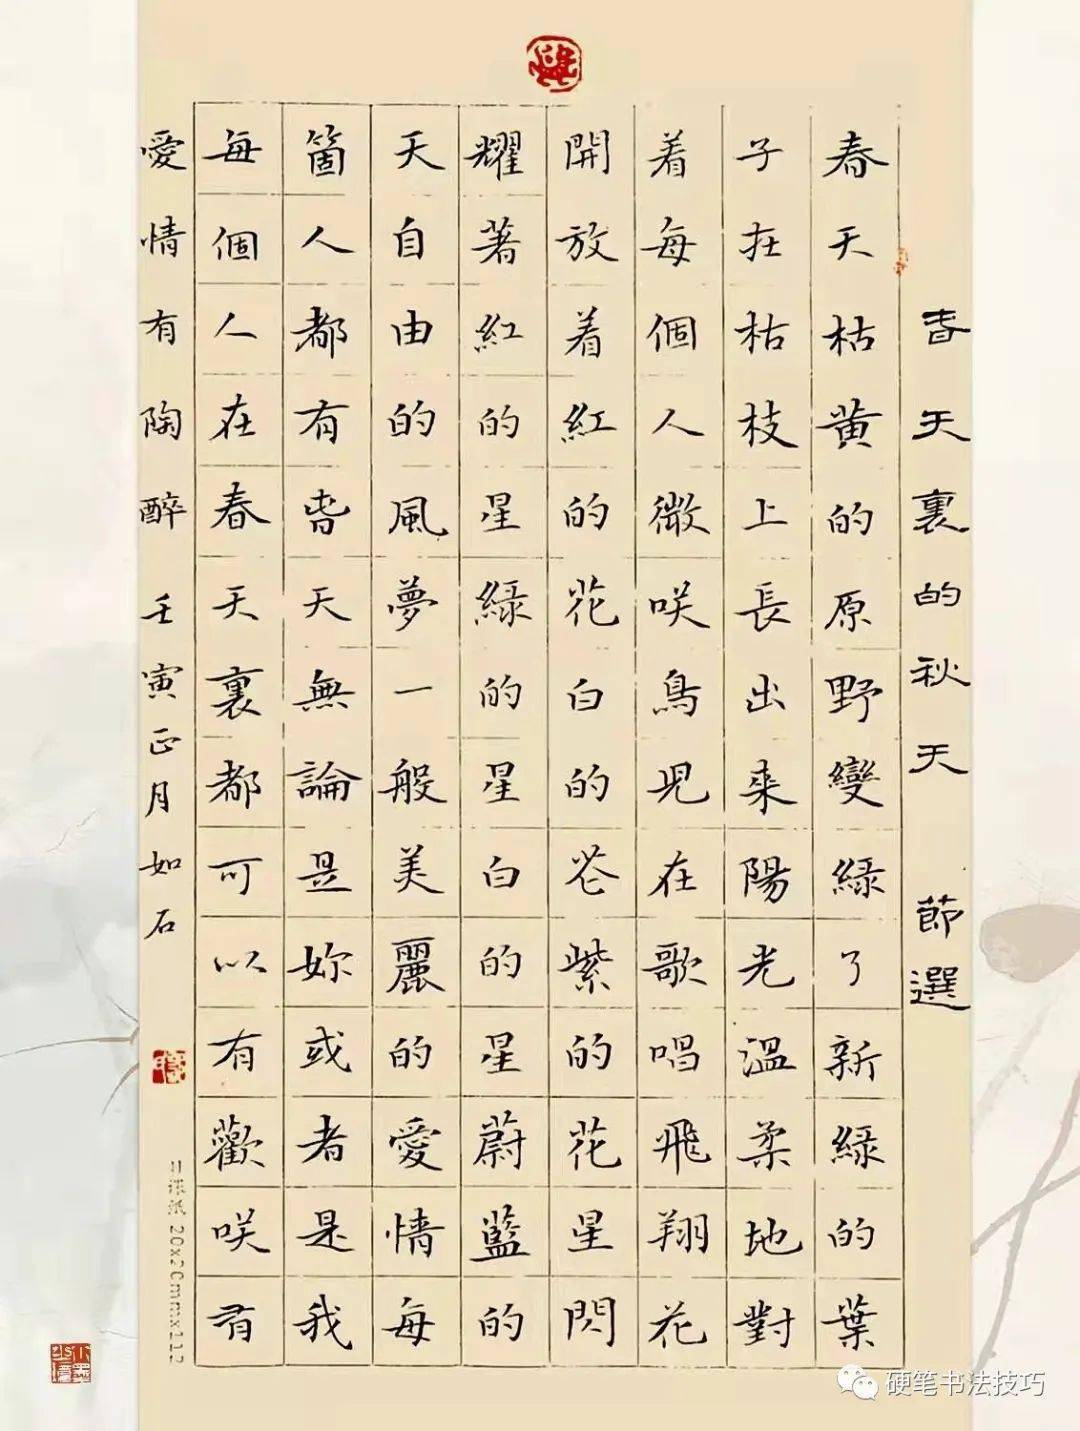 春天裏的秋天 節選
春天枯黄的原野變綠了新綠的葉
子在枯枝上長出来陽光溫柔地對
着每個人微咲鳥児在歌唱飛翔花
開放着紅的花白的花紫的花星閃
耀著紅的星綠的星白的星蔚藍的
天自由的風夢一般美麗的愛情每
箇人都有春天無論是妳或者是我
每個人在春天裏都可以有歡咲有
愛情有陶醉 壬寅正月如石
20x20mmx112
硬笔书法技巧